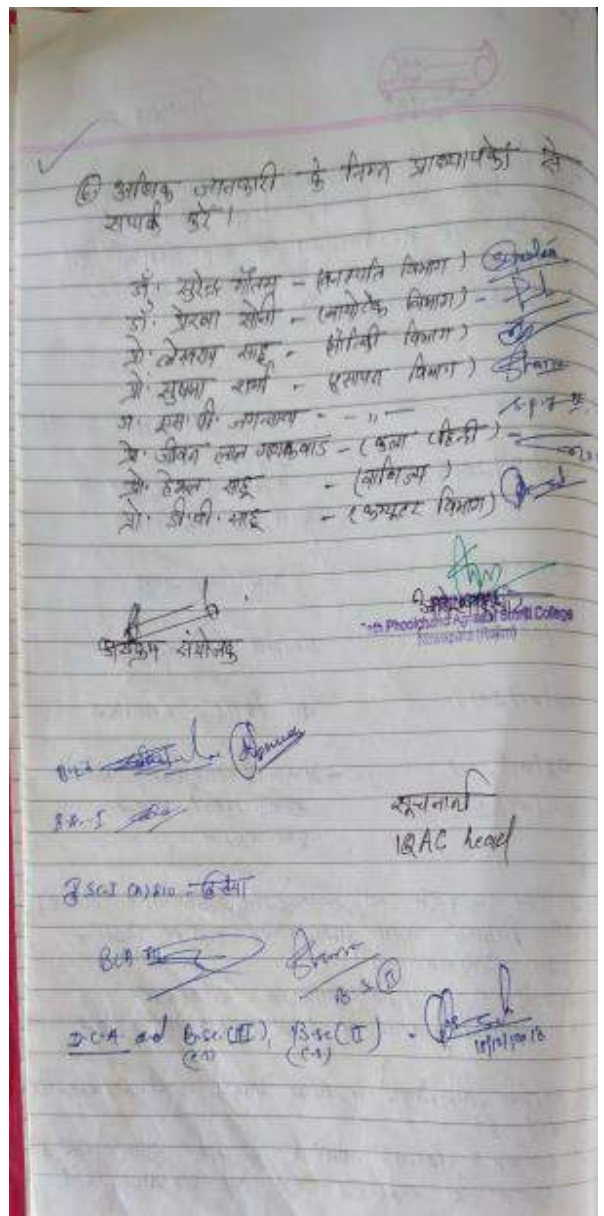 ⑥ अधिक जानकारी के निम्न प्राध्यापकों से
संपर्क करें।
डॉ. सुरेन्द्र गौतम - (वनस्पति विभाग)
डॉ. प्रेरणा सोनी - (बायोटेक विभाग) -
प्रो. लेखराम साहू - भौतिकी विभाग)
प्रो. सुषमा शर्मा - रसायन विभाग)
एस. पी. जगन्नाथ - - ,, -
प्रो. जीवन लाल गायकवाड - (कला हिन्दी)
प्रो. हेमन्त साहू - (वाणिज्य)
प्रो. डी.पी. साहू - (कम्प्यूटर विभाग)
Phoolchand Agrawal Smriti College
Nawapara (Rajim)
कार्यक्रम संयोजक
सूचनार्थ
IQAC head
B.A.-I
BCA
B.Sc (II)
D.C.A and B.Sc (III), B.Sc (II) -
(C.S) (C.S)